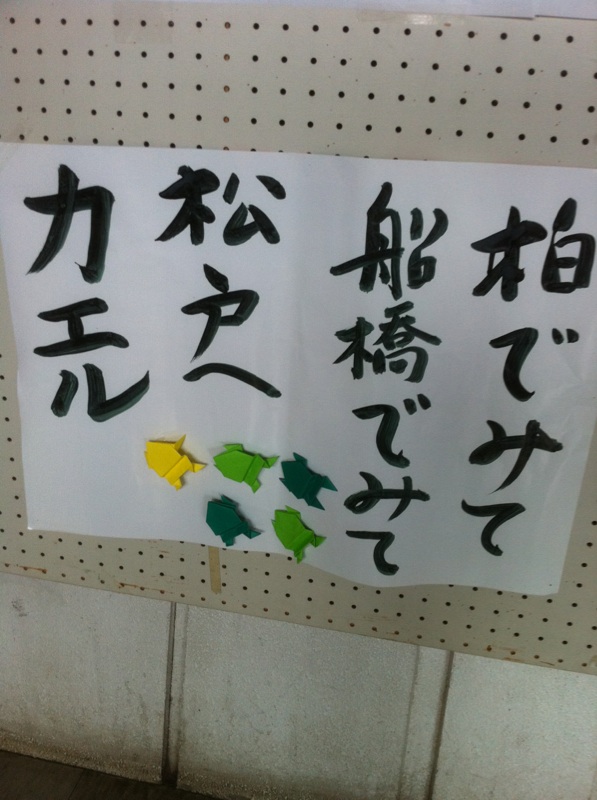 柏でみて
船橋でみて
松戸へ
カエル